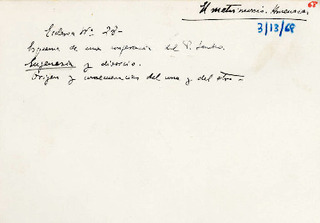 68
H matrimonio. Amenazas.
3/13/68
Esclava Nº. 27-
Esquema de una conferencia del P. Landro.
Eugenesia y divorcio.
Origen y consecuencias del uno y del otro -